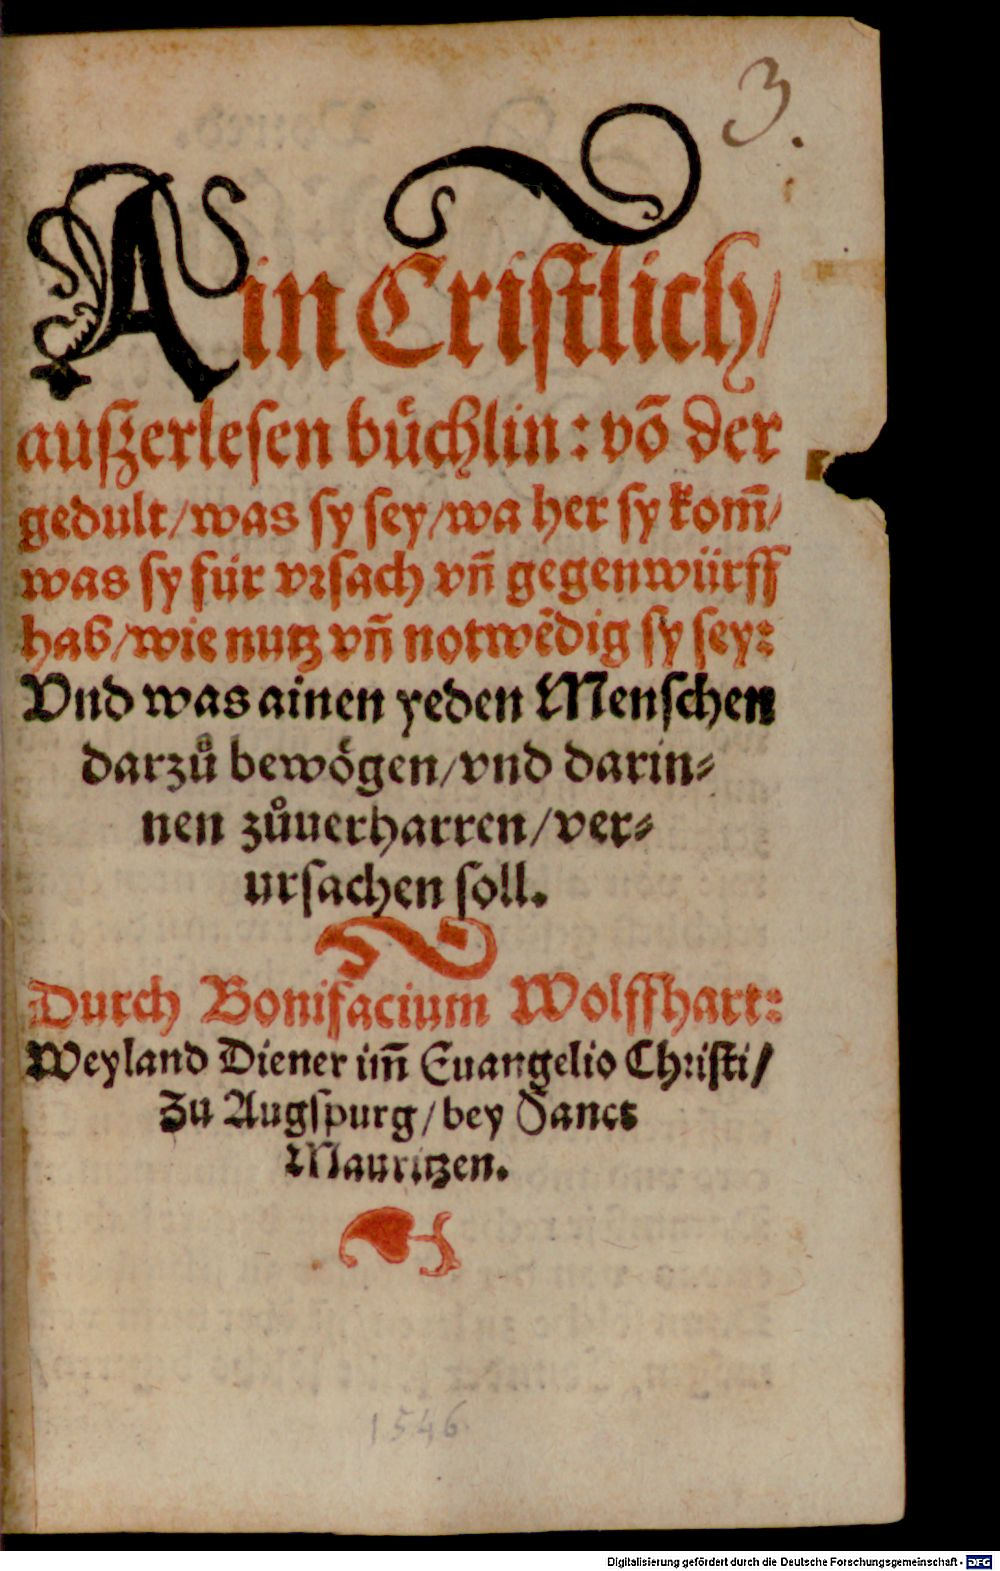 3.
Ain Cristlich/
auſzerleſen bůchlin: võ der
gedult/was ſy ſey/wa her ſy kom̃/
was ſy für vꝛſach vñ gegenwürff
hab/wie nutz vñ notwẽdig ſy ſey:
Vnd was ainen yeden Menſchen
darzů bewögen/vnd darin⸗
nen zůuerharren/ver⸗
urſachen ſoll.
Durch Bonifacium Wolffhart:
Weyland Diener im̃ Euangelio Chꝛiſti/
Zu Augſpurg/bey Sanct
Mauritzen.
1546.
Digitalisierung gefördert durch die Deutsche Forschungsgemeinschaft - DFG